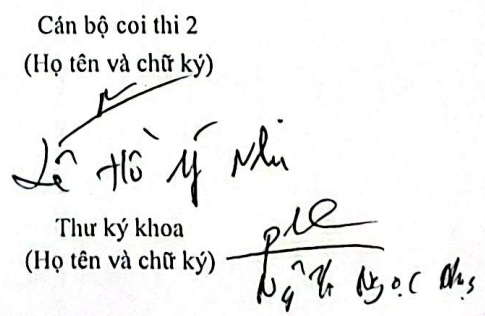 Cán bộ coi thi 2
(Họ tên và chữ ký)
Lê Hồ Ý Nhi
Thư ký khoa
(Họ tên và chữ ký)
Ngọc